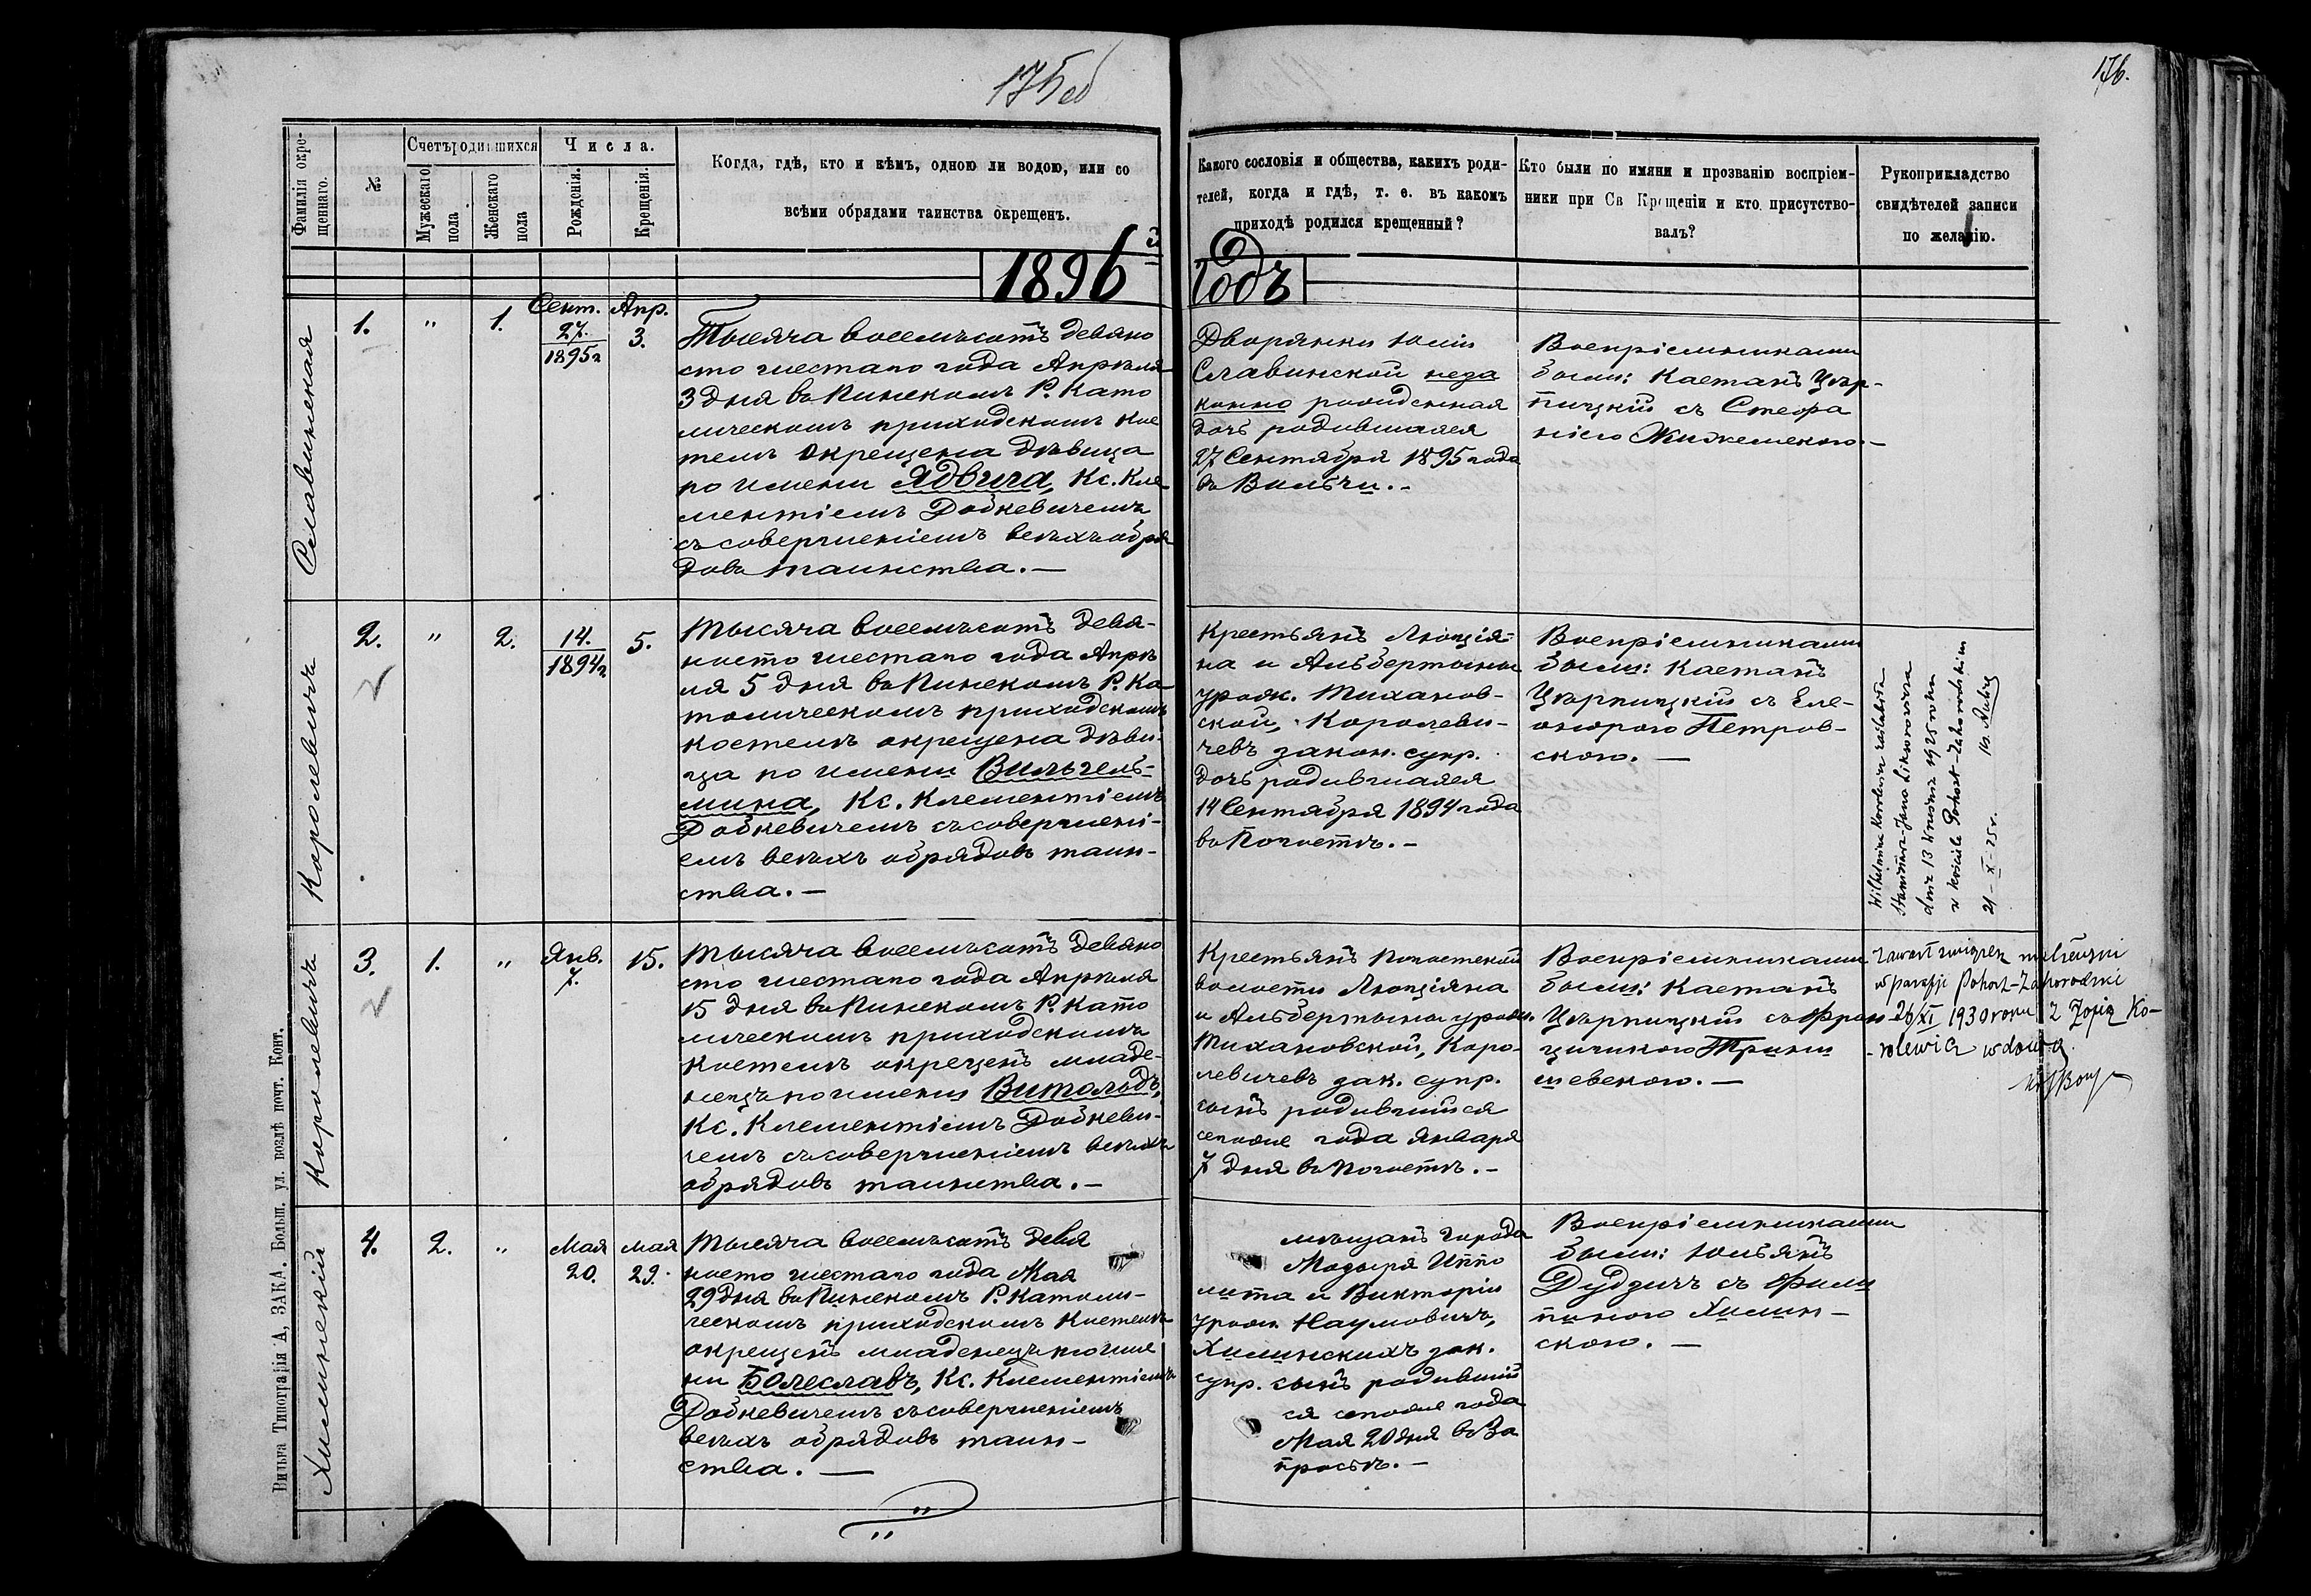 175 об
176.
Фамилія окре-
щеннаго.
№
Счетъ родившихся
Мужескаго
пола
Женскаго
пола
Числа.
Рожденія.
Крещенія.
Когда, гдѣ, кто и кѣмъ, одною ли водою, или со
всѣми обрядами таинства окрещенъ.
Какого сословія и общества, какихъ роди-
телей, когда и гдѣ, т. е. въ какомъ
приходѣ родился крещенный?
Кто были по имяни и прозванію воспріем-
ники при Св Крещеніи и кто присутство-
валъ?
Рукоприкладство
свидѣтелей записи
по желанію.
1896й
Годъ
Славинская
1.
"
1.
Сент.
27.
1895г
Апр.
3.
Тысяча восемьсотъ девяно
сто шестаго года Апрѣля
3 дня въ Пинскомъ Р. Като
лическомъ приходскомъ кос
телѣ окрещена дѣвица
по имени Ядвига, Кс. Кле
ментіемъ Добкевичемъ
съ совершеніемъ всѣхъ обря
довъ таинства. —
Дворянки Юліи
Славинской неза
конно рожденная
дочь родившаяся
27 Сентября 1895 года
въ
Воспріемниками
были: Каетанъ Цѣр-
пицкій съ Стефа
ніею Жижемскою. —
Королевичъ
2.
"
2.
14.
1894г
5.
Тысяча восемьсотъ девя-
носто шестаго года Апрѣ
ля 5 дня въ Пинскомъ Р. Ка
толическомъ приходскомъ
костелѣ окрещена дѣви-
ца по имени Вильгель-
мина, Кс. Клементіемъ
Добкевичемъ съ совершені-
емъ всѣхъ обрядовъ таин-
ства. —
Крестьянъ Люціа-
на и Альбертины
урожд. Тихановской, Королеви-
чевъ закон. супр.
дочь родившаяся
14 Сентября 1894 года
въ Погостѣ. —
Воспріемниками
были: Каетанъ
Цѣрпицкій съ Еле-
онорою Петров-
скою. —
Wilhelmina Korolewicz zaślubiła
dnia 13 1925 roku
w kościele Pohost-Zahorodskim
21-X-25r.
Королевичъ
3.
1.
"
Янв.
7.
15.
Тысяча восемьсотъ девяно
сто шестаго года Апрѣля
15 дня въ Пинскомъ Р. Като
лическомъ приходскомъ
костелѣ окрещенъ младе-
нецъ по имени Витольдъ,
Кс. Клементіемъ Добкеви-
чемъ съ совершеніемъ всѣхъ
обрядовъ таинства. —
Крестьянъ Погостской
волости Люціана
и Альбертины урожд.
Тихановской, Коро-
левичевъ зак. супр.
сынъ родившійся
сегоже года Января
7 дня въ Погостѣ. —
Воспріемниками
были: Каетанъ
Цѣрпицкій съ Фран-
шевскою. —
zawarł związek małżeński
w parafji Pohost-Zahorodzki
26/XI 1930 roku z Zofją Ko-
-rolewicz wdową
Хилинскій
4.
2.
"
Мая
20.
Мая
29.
Тысяча восемьсотъ девя
носто шестаго года Мая
29 дня въ Пинскомъ Р. Католи-
ческомъ приходскомъ костелѣ
окрещенъ младенецъ по име
ни Болеславъ, Кс. Клементіемъ
Добкевичемъ съ совершеніемъ
всѣхъ обрядовъ таин-
ства. —
мѣщанъ города
Мозыря Иппо
лита и Викторіи
урожд Наумовичъ,
Хилинскихъ зак.
супр. сынъ родившій
ся сегоже года
Мая 20 дня въ За
просьѣ. —
Воспріемниками
были: Юльянъ
Дудзичъ съ Фили
пиною Хилин-
скою. —
Вильна Типографія А, ЗАКА. Больш. ул. возлѣ почт. Конт.